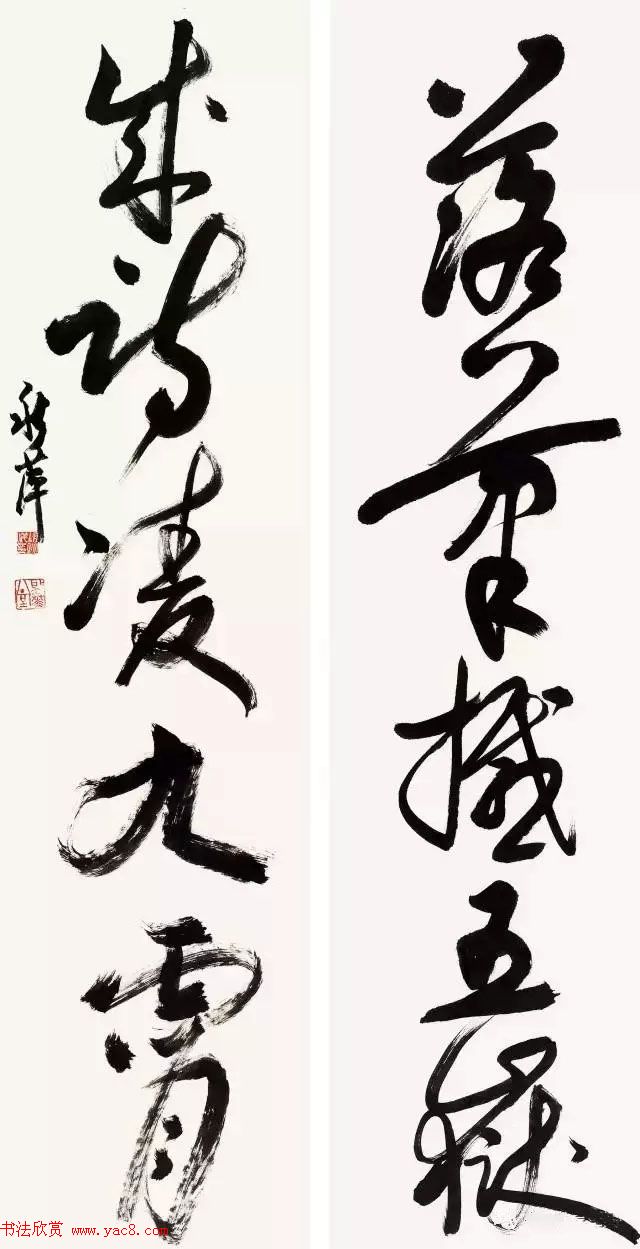 落笔撼五嶽
成诗凌九霄
秋萍
书法欣赏 www.yac8.com